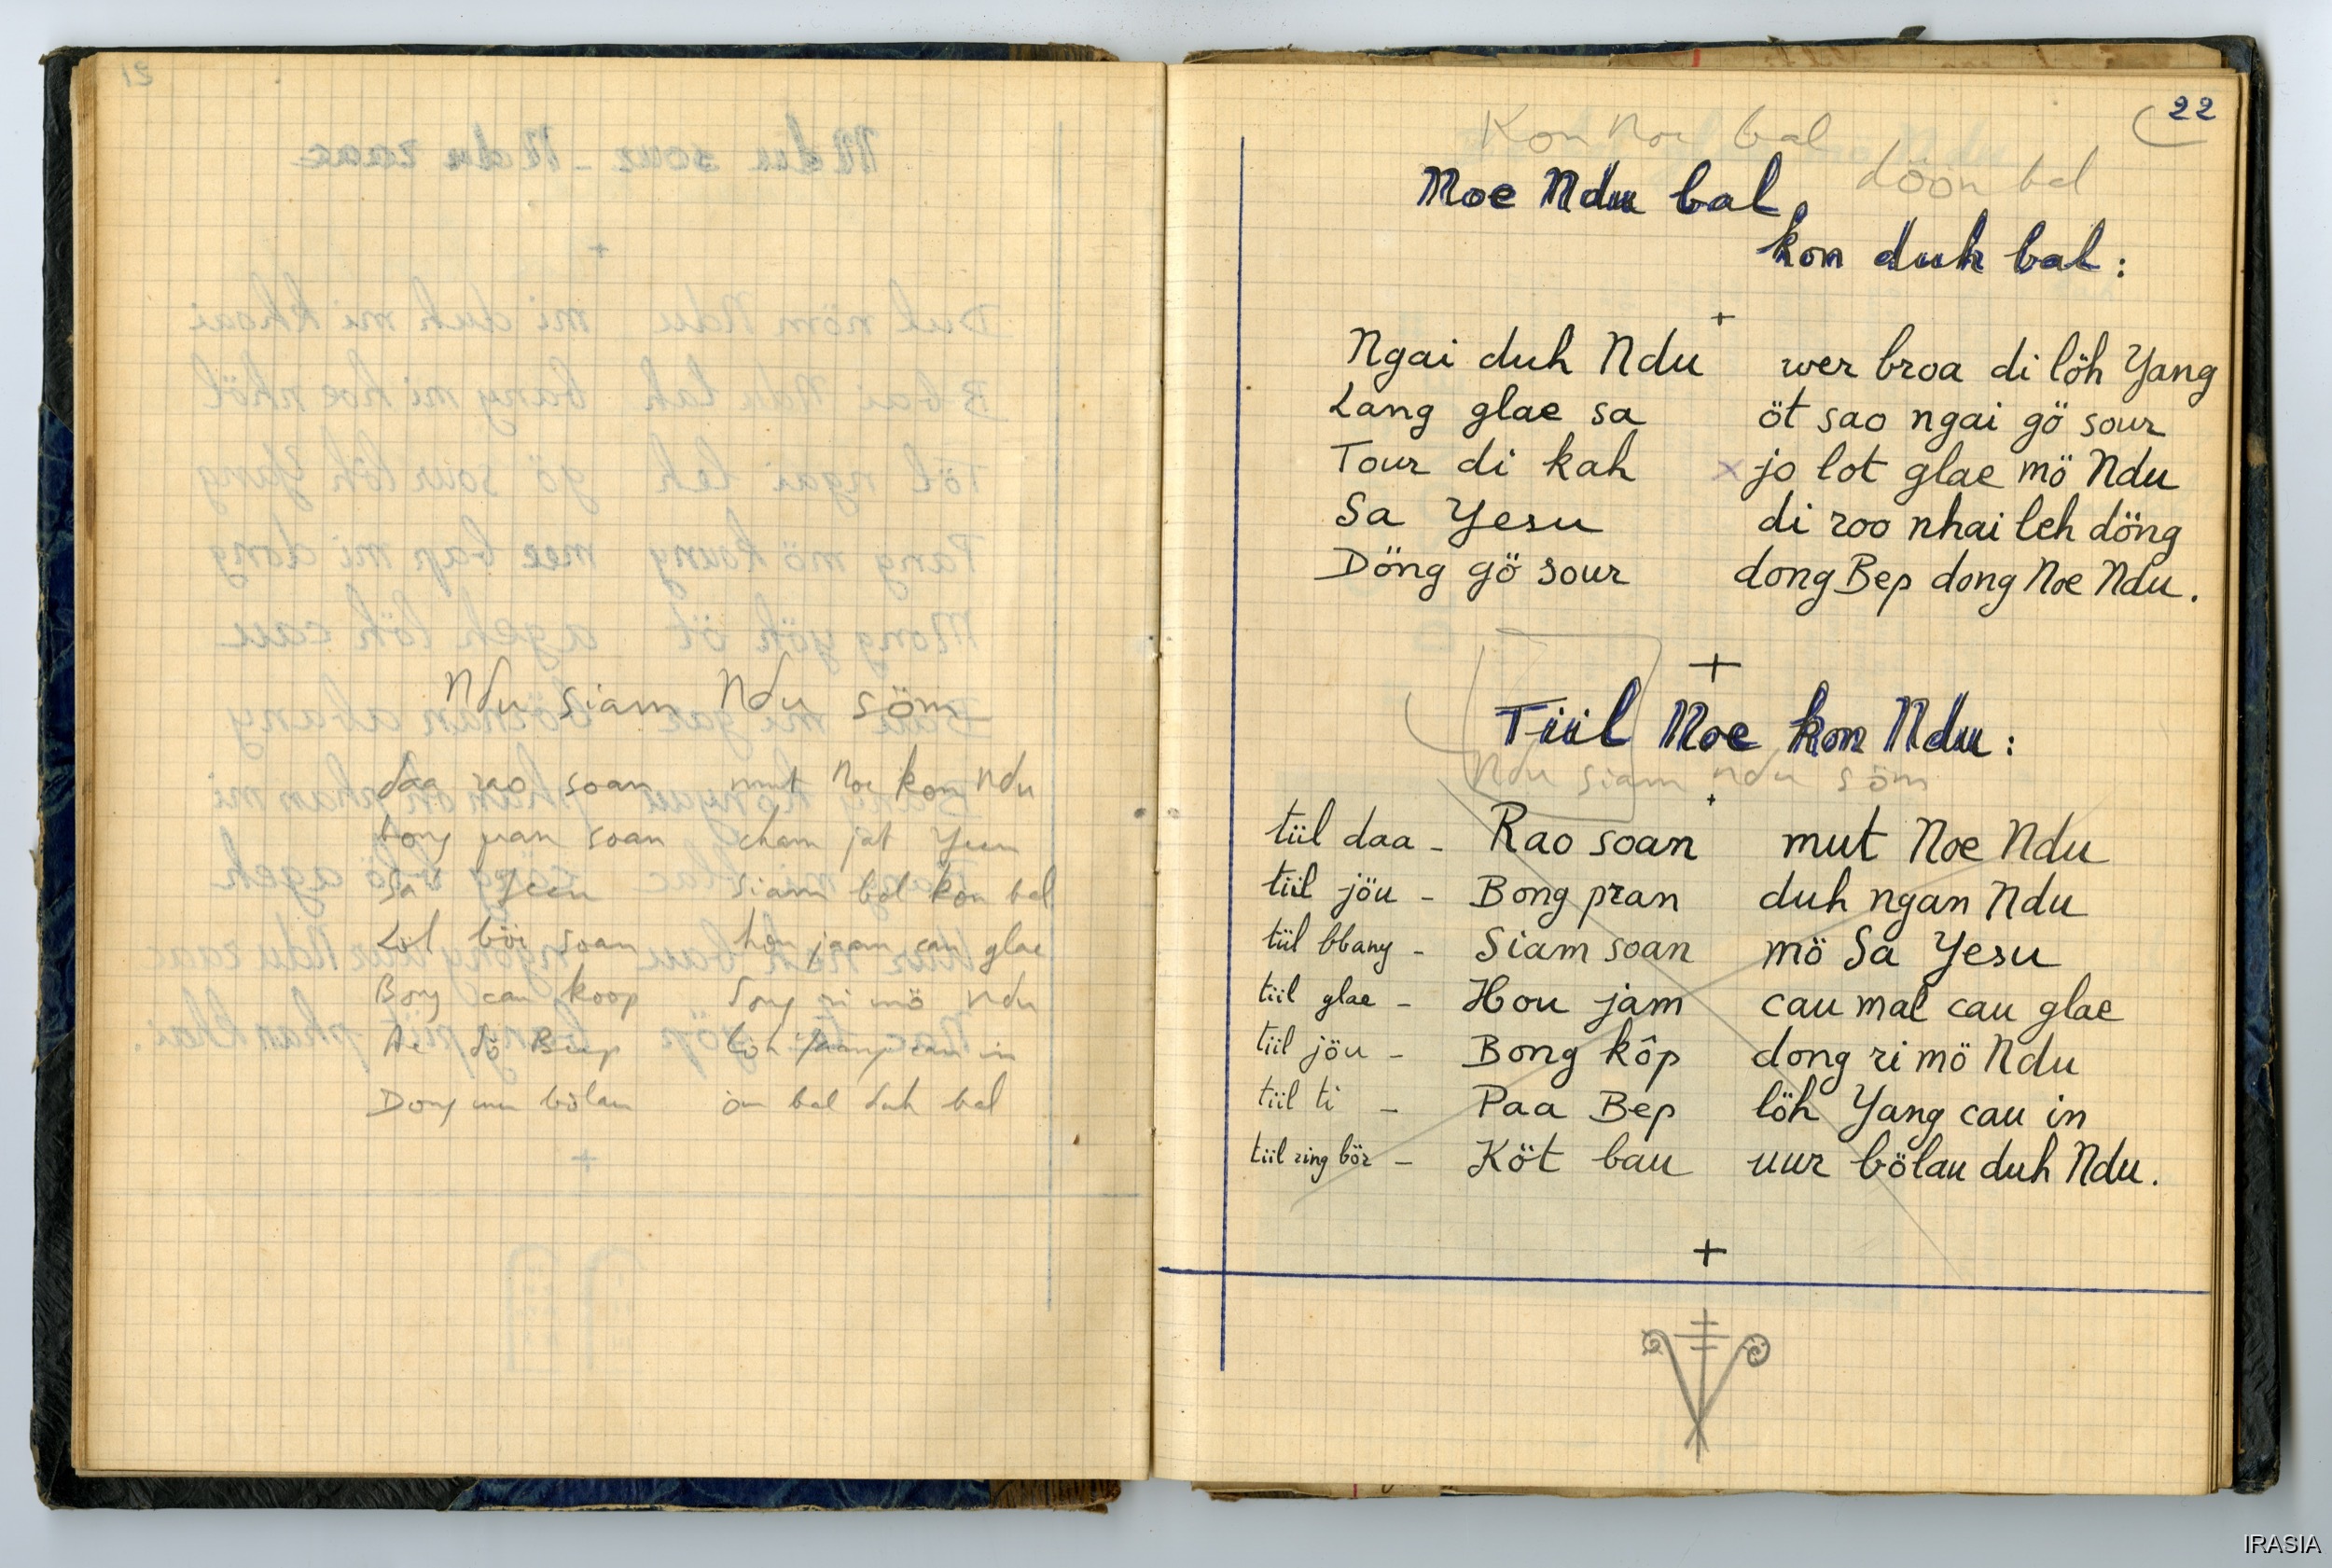 Ndu siam Ndu söm
daa rao soan mut Noe kon Ndu
bong pran soan cham jat Yesu
Sa Yesu siam böl kon bal
Löt böi soan hou jaam cau glae
Bong cau koop dong ri mö Ndu
dö Beep löh Yaang cau in
Dong uur bölau ön bal duh bal
22
Kon Noe bal
döön bal
Noe Ndu bal,
kon duh bal :
+
Ngai duh Ndu wer broa di löh Yang
Lang glae sa öt sao ngai gö sour
Tour di kah x jo lot glae mö Ndu
Sa Yesu di roo nhai leh döng
Döng gö sour dong Bep dong Noe Ndu.
+
Tiil Noe kon Ndu :
Ndu siam ndu söm
+
tiil daa - Rao soan mut Noe Ndu
tiil jöu - Bong pran duh ngan Ndu
tiil bbany - Siam soan mö Sa Yesu
tiil glae - Hou jam cau mal cau glae
tiil jöu - Bong kôp dong ri mö Ndu
tiil ti - Paa Bep löh Yang cau in
tiil ring bör - Köt bau uur bölau duh Ndu.
+
IRASIA